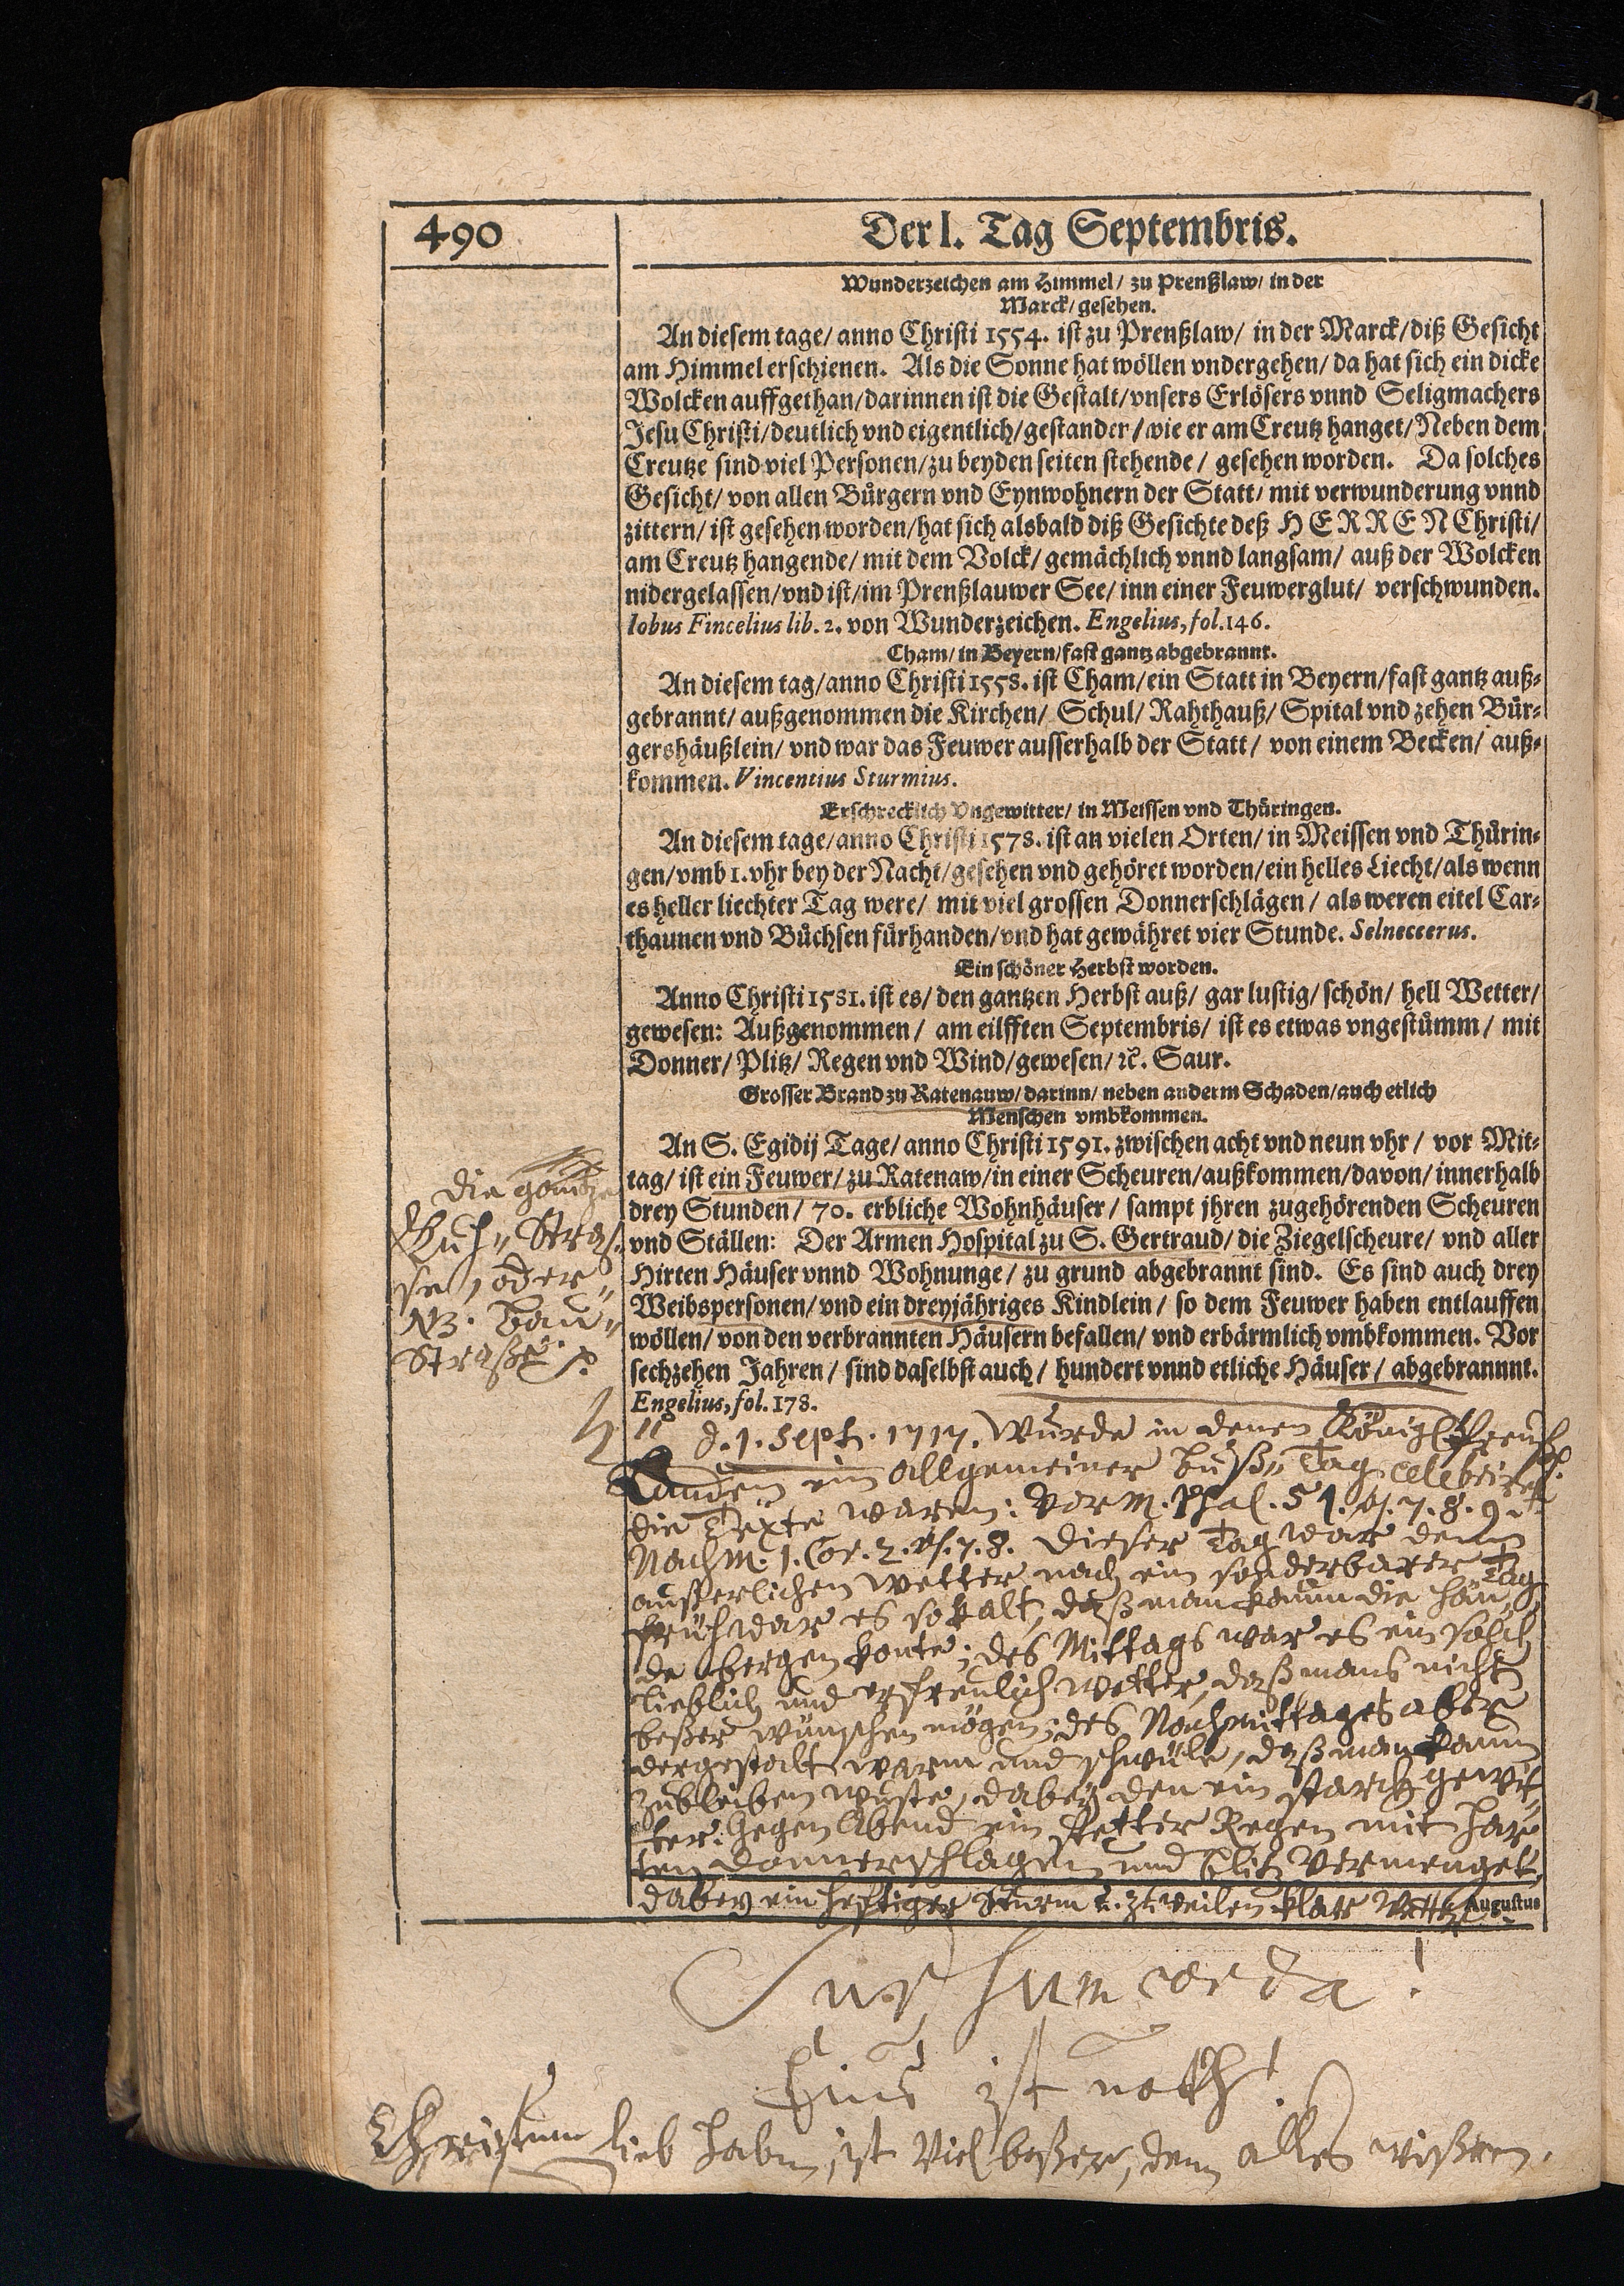 490
Der 1. Tag Septembris.
Wunderzeichen am Himmel/ zu Prenßlaw/ in der
Marck/ gesehen.
An diesem tage/ anno Christi 1554. ist zu Prenßlaw/ in der Marck/ diß Gesicht
am Himmel erschienen. Als die Sonne hat wöllen vndergehen/ da hat sich ein dicke
Wolcken auffgethan/ darinnen ist die Gestalt/ vnsers Erlösers vnnd Seligmachers
Jesu Christi/ deutlich vnd eigentlich/ gestanden/ wie er am Creutz hanget/ Neben dem
Creutze sind viel Personen/ zu beyden seiten stehende/ gesehen worden. Da solches
Gesicht/ von allen Bürgern vnd Eynwohnern der Statt/ mit verwunderung vnnd
zittern/ ist gesehen worden/ hat sich alsbald diß Gesichte deß HERREN Christi/
am Creutz hangende/ mit dem Volck/ gemächlich vnnd langsam/ auß der Wolcken
nidergelassen/ vnd ist/ im Prenßlauwer See/ inn einer Feuwerglut/ verschwunden.
Iobus Fincelius lib. 2. von Wunderzeichen. Engelius, fol. 146.
Cham/ in Beyern/ fast gantz abgebrannt.
An diesem tag/ anno Christi 1558. ist Cham/ ein Statt in Beyern/ fast gantz auß-
gebrannt/ außgenommen die Kirchen/ Schul/ Rahthauß/ Spital vnd zehen Bür-
gershäußlein/ vnd war das Feuwer ausserhalb der Statt/ von einem Becken/ auß-
kommen. Vincentius Sturmius.
Erschrecklich Vngewitter/ in Meissen vnd Thüringen.
An diesem tage/ anno Christi 1578. ist an vielen Orten/ in Meissen vnd Thürin-
gen/ vmb 1. vhr bey der Nacht/ gesehen vnd gehöret worden/ ein helles Liecht/ als wenn
es heller liechter Tag were/ mit viel grossen Donnerschlägen/ als weren eitel Car-
thaunen vnd Büchsen fürhanden/ vnd hat gewähret vier Stunde. Selneccerus.
Ein schöner Herbst worden.
Anno Christi 1581. ist es/ den gantzen Herbst auß/ gar lustig/ schön/ hell Wetter/
gewesen: Außgenommen/ am eilfften Septembris/ ist es etwas vngestümm/ mit
Donner/ Plitz/ Regen vnd Wind/ gewesen/ ꝛc. Saur.
Grosser Brand zu Ratenauw/ darinn/ neben anderm Schaden/ auch etlich
Menschen vmbkommen.
An S. Egidij Tage/ anno Christi 1591. zwischen acht vnd neun vhr/ vor Mit-
tag/ ist ein Feuwer/ zu Ratenaw/ in einer Scheuren/ außkommen/ davon/ innerhalb
drey Stunden/ 70. erbliche Wohnhäuser/ sampt jhren zugehörenden Scheuren
vnd Ställen: Der Armen Hospital zu S. Gertraud/ die Ziegelscheure/ vnd aller
Hirten Häuser vnnd Wohnunge/ zu grund abgebrannt sind. Es sind auch drey
Weibspersonen/ vnd ein dreyjähriges Kindlein/ so dem Feuwer haben entlauffen
wöllen/ von den verbrannten Häusern befallen/ vnd erbärmlich vmbkommen. Vor
sechzehen Jahren/ sind daselbst auch/ hundert vnnd etliche Häuser/ abgebrannnt.
Engelius, fol. 178.
die gantze
Kuh-Stras-
se, oder
Bau-
Straße
d. 1. Sept. 1717. wurde in denen Königl. Preuß.
Landen ein allgemeiner Buß-Tag celebriret
die Texte waren: Vorm. Psal. 51. vs. 7. 8. 9.
Nachm. 1. Cor. 2. vs. 7. 8. Dieser Tag war dem
äusserlichen Wetter nach ein sonderbarer Tag
früh war es so kalt, daß man kaum die Hän-
de bergen konte; des Mittags war es ein solch
lieblich und erfreulich Wetter, daß mans nicht
beßer wünschen mögen; des Nachmittages aber
dergestalt warm und schwüle, daß man kaum
zubleiben wuste, dabey den ein starck gewit-
ter. Gegen Abend ein fetter Regen mit har-
ten Donnerschlägen und Blitz vermenget,
dabey ein hefftiger Sturm u. zuweilen klar Wetter.
Augustus
Sursum corda!
Eins ist noth!
Christum lieb haben, ist viel beßer, denn alles wißen.